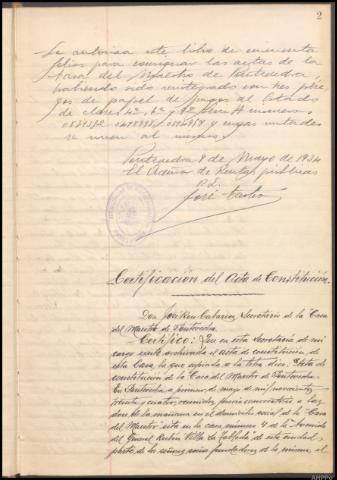 2
Se autoriza este libro de cincuenta
folios para consignar las actas de la
Casa del Maestro de Pontevedra,
habiendo sido reintegrado con tres plie-
gos de papel de pagos al Estado
de clases
se unen al mismo.
Pontevedra 8 de Mayo de 1934
El Admor de Rentas públicas
P.I.
José
Certificación del Acta de Constitución.
Don José Rey Cabarcos, Secretario de la Casa
del Maestro de Pontevedra
Certifico: Que en esta Secretaría de mi
cargo existe archivada el acta de constitución de
esta Casa, la que copiada a la letra dice: "Acta de
constitución de la Casa del Maestro de Pontevedra.
En Pontevedra a primero de mayo de mil novecientos
treinta y cuatro, reunidos, previa convocatoria, a las
doce de la mañana en el domicilio social de la "Casa
del Maestro" sita en la casa número 4 de la Avenida
del General Rubín Villa de esta ciudad,
de los señores socios fundadores de la misma, al
AHPPo